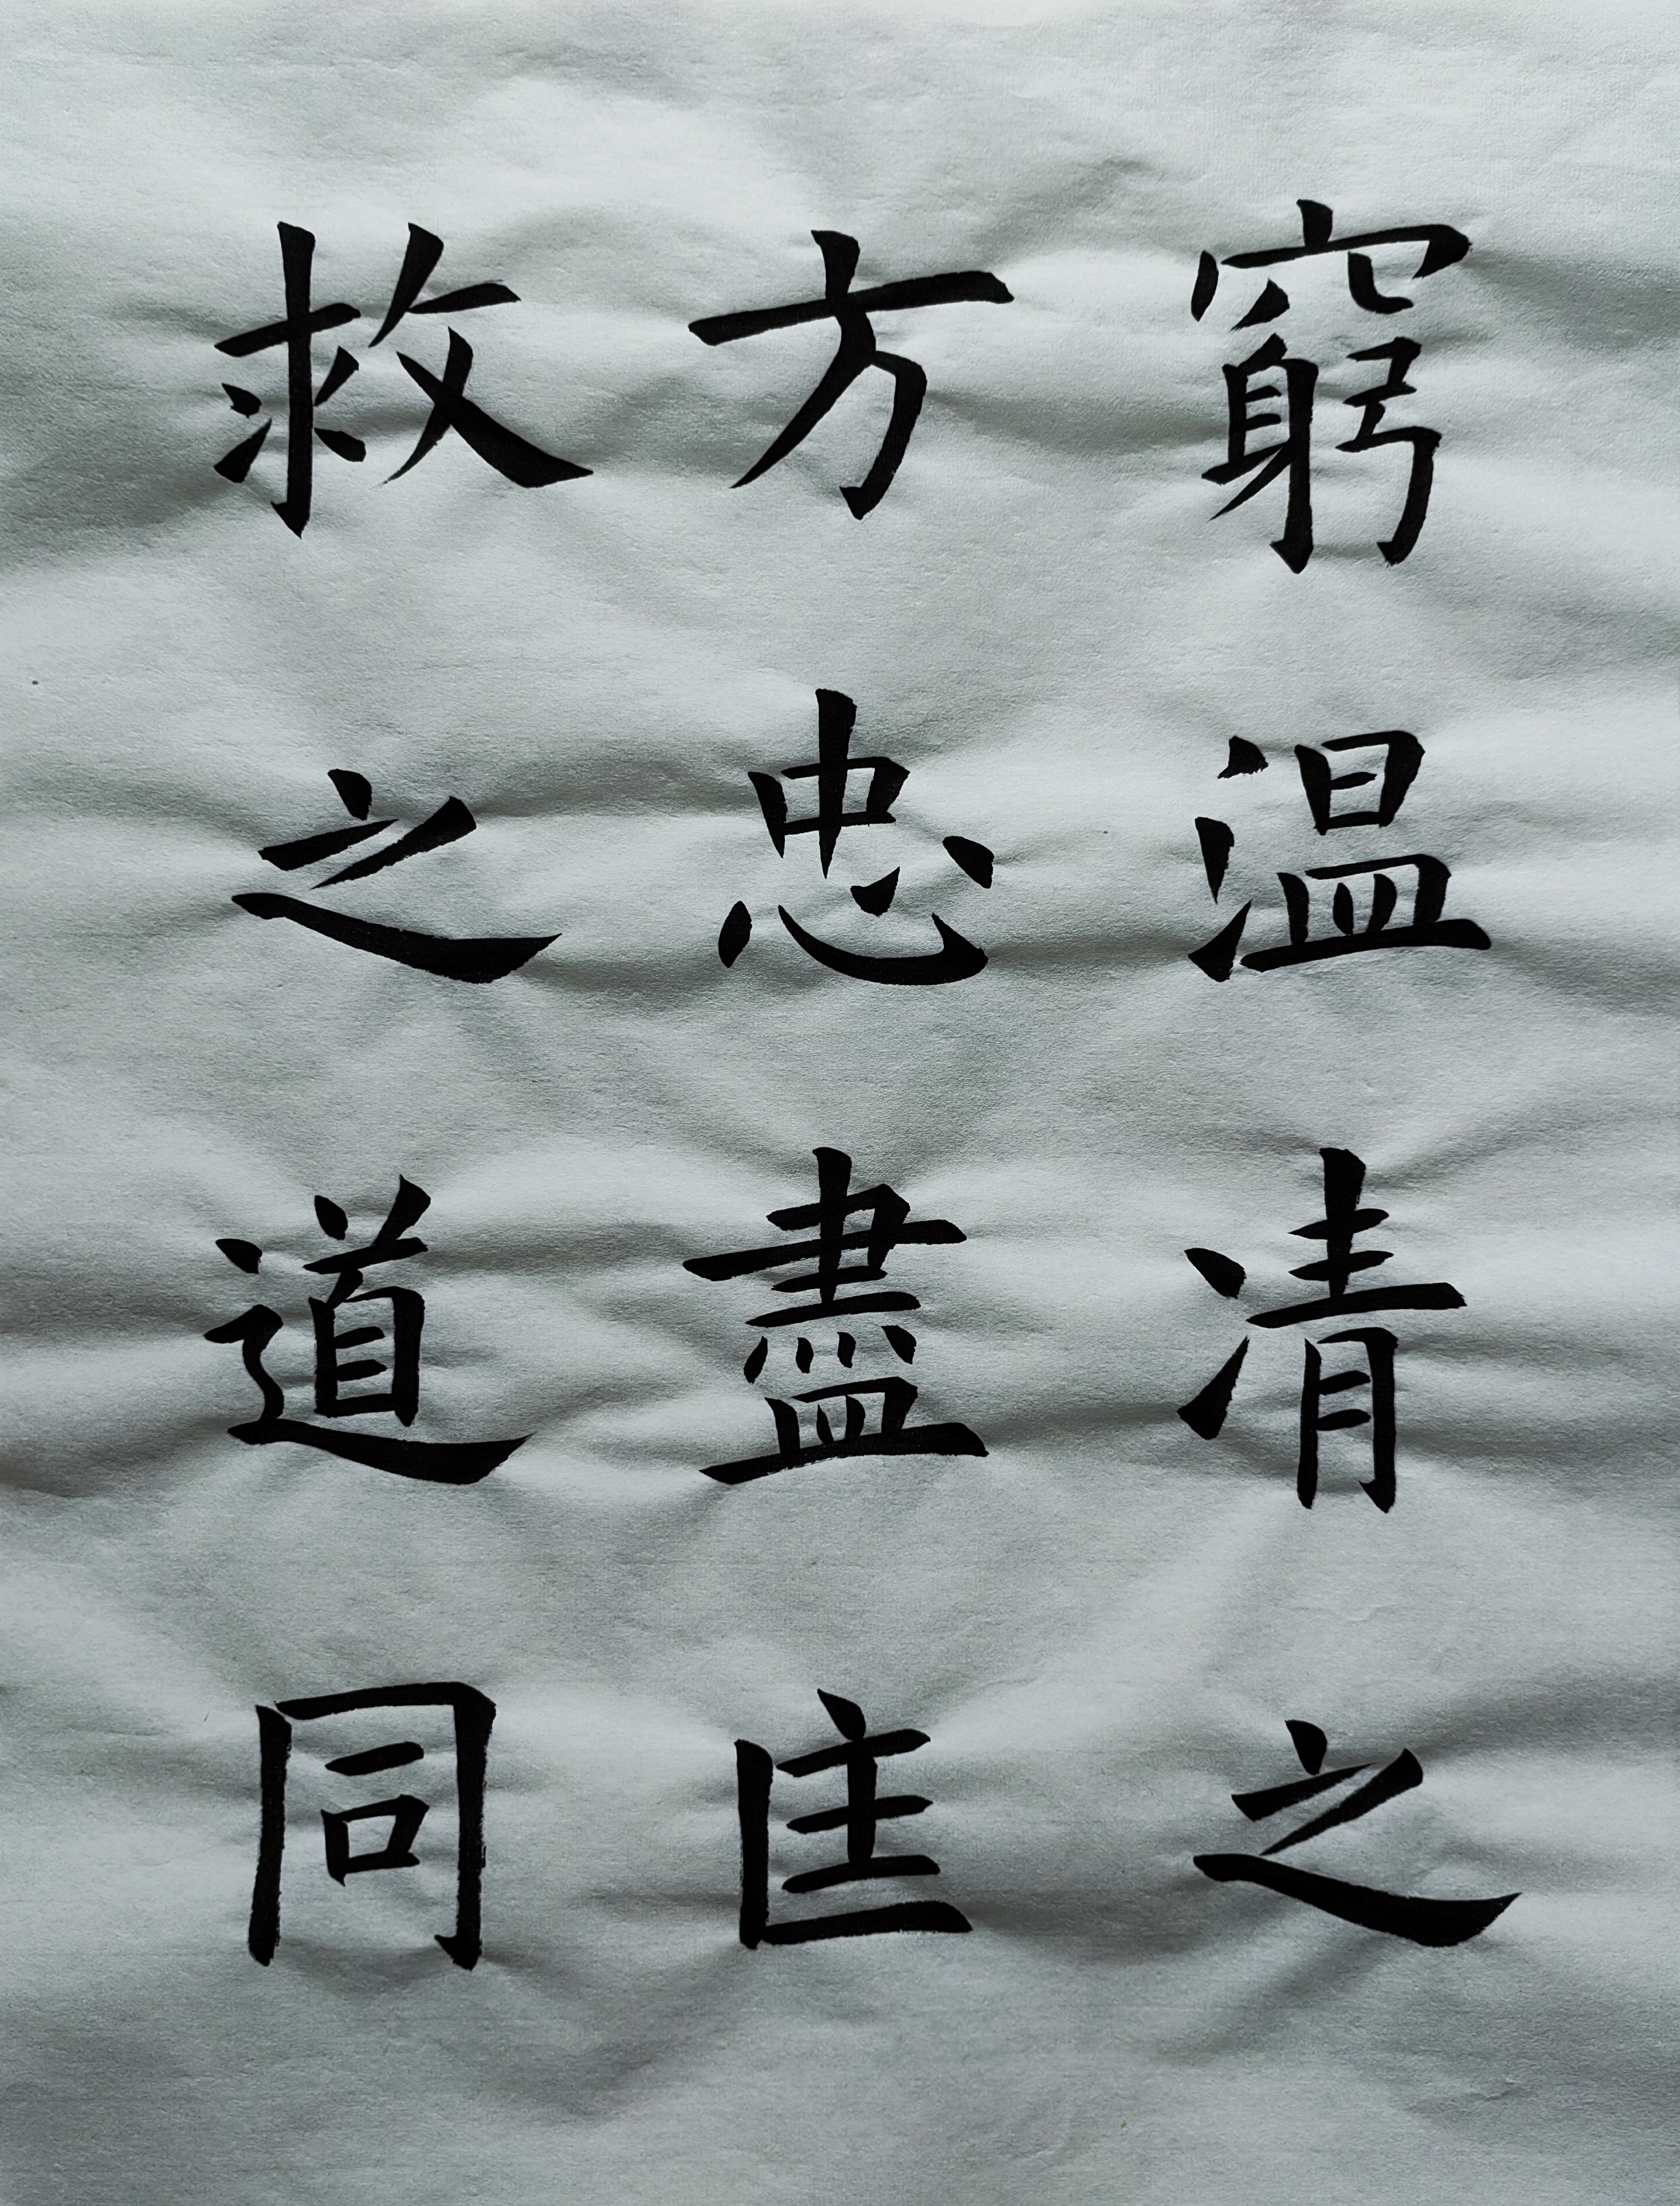 窮温凊之
方忠盡匡
救之道同